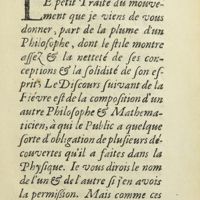 LE petit Traité du mouve-
ment que je viens de vous
donner, part de la plume d'un
Philosophe, dont le stile montre
assez & la netteté de ses con-
ceptions & la solidité de son es-
prit. Le Discours suivant de la
Fiévre est de la composition d'un
autre Philosophe & Mathema-
ticien, à qui le Public a quelque
sorte d'obligation de plusieurs dé-
couvertes qu'il a faites dans la
Physique. Ie vous dirois le nom
de l'un & de l'autre si j'en avois
la permission. Mais comme ces